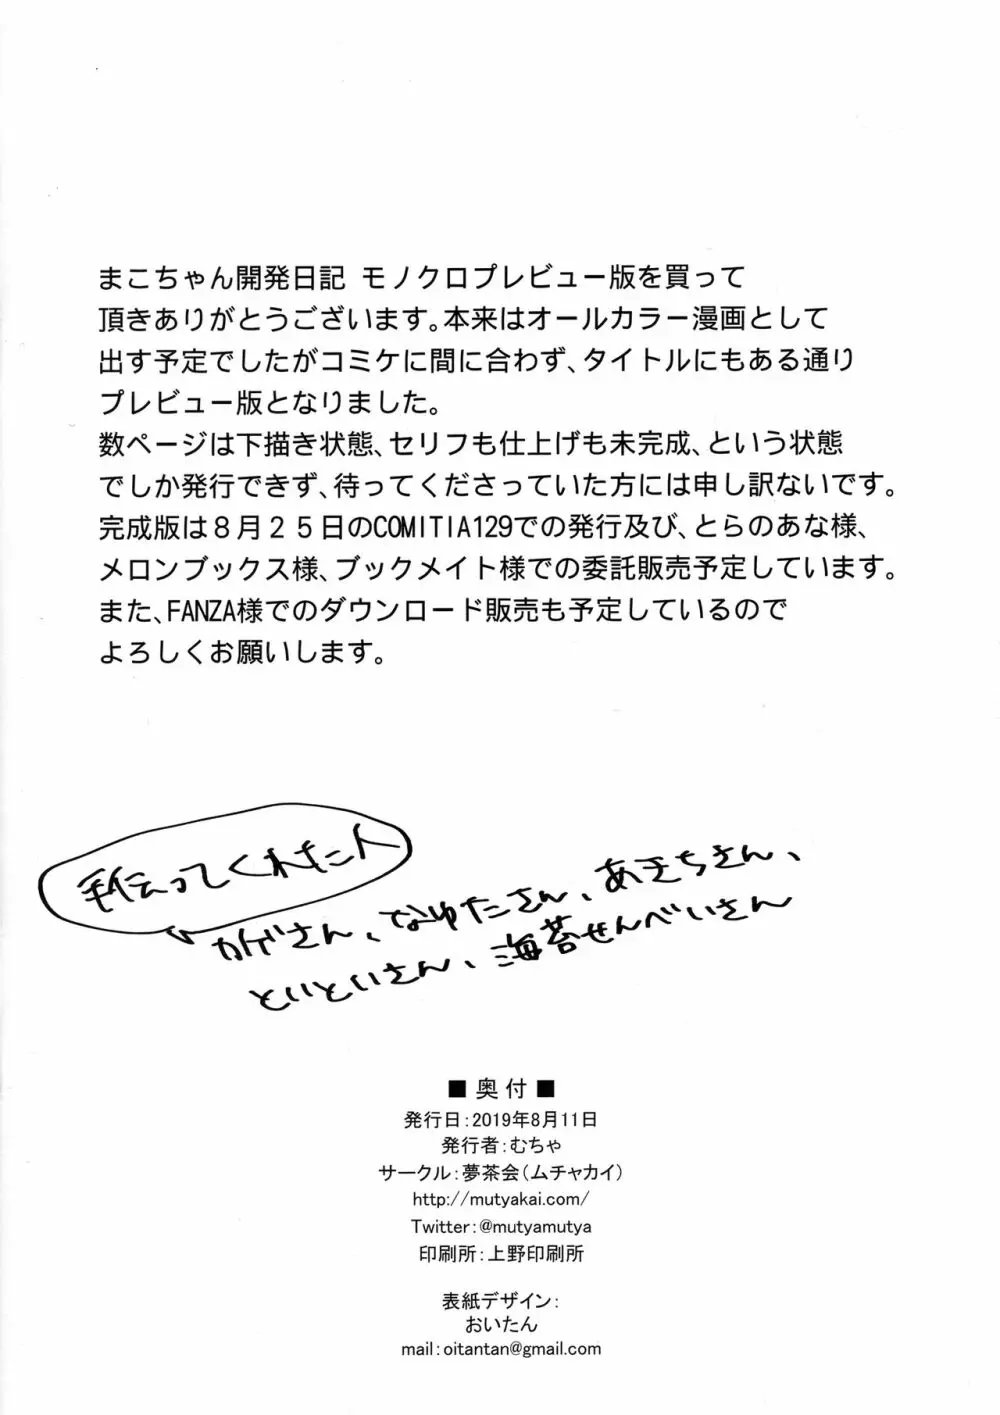 まこちゃん開発日記 モノクロプレビュー版を買って
頂きありがとうございます。本来はオールカラー漫画として
出す予定でしたがコミケに間に合わず、タイトルにもある通り
プレビュー版となりました。
数ページは下描き状態、セリフも仕上げも未完成、という状態
でしか発行できず、待ってくださっていた方には申し訳ないです。
完成版は８月２５日のCOMITIA129での発行及び、とらのあな様、
メロンブックス様、ブックメイト様での委託販売予定しています。
また、FANZA様でのダウンロード販売も予定しているので
よろしくお願いします。
手伝ってくれた人
カゲさん、なゆたさん、あきちさん、
といといさん、海苔せんべいさん
■ 奥付 ■
発行日：2019年8月11日
発行者：むちゃ
サークル：夢茶会（ムチャカイ）
http://mutyakai.com/
Twitter：@mutyamutya
印刷所：上野印刷所
表紙デザイン：
おいたん
mail：oitantan@gmail.com